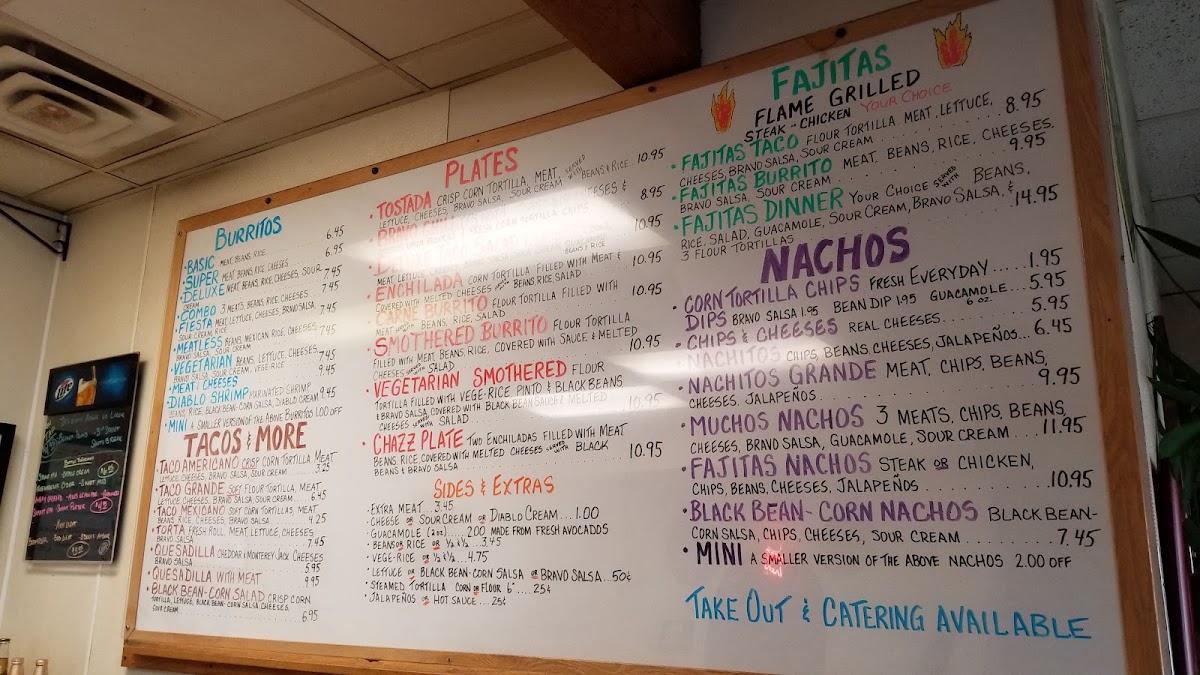 BURRITOS
• BASIC MEAT, BEANS, RICE 6.45
• SUPER MEAT, BEANS, RICE, CHEESES 6.95
• DELUXE MEAT, BEANS, RICE, CHEESES, SOUR CREAM 7.45
• COMBO 3 MEATS, BEANS, RICE, CHEESES 7.45
• FIESTA MEAT, LETTUCE, CHEESES, BRAVO SALSA, SOUR CREAM, RICE 7.45
• MEATLESS BEANS, MEXICAN RICE, CHEESES, BRAVO SALSA, SOUR CREAM 7.45
• VEGETARIAN BEANS, LETTUCE, CHEESES, BRAVO SALSA, SOUR CREAM, VEGE-RICE 7.45
• MEAT & CHEESES 9.45
• DIABLO SHRIMP MARINATED SHRIMP, BEANS, RICE, BLACK BEAN-CORN SALSA, DIABLO CREAM 9.45
• MINI A SMALLER VERSION OF THE ABOVE BURRITOS 1.00 OFF
TACOS & MORE
• TACO AMERICANO CRISP CORN TORTILLA, MEAT
LETTUCE, CHEESES, BRAVO SALSA, SOUR CREAM.... 3.25
• TACO GRANDE SOFT FLOUR TORTILLA, MEAT,
LETTUCE, CHEESES, BRAVO SALSA, SOUR CREAM.... 6.45
• TACO MEXICANO SOFT CORN TORTILLAS, MEAT,
BEANS, RICE, CHEESES, BRAVO SALSA.... 4.25
• TORTA FRESH ROLL, MEAT, LETTUCE, CHEESES,
BRAVO SALSA 7.45
• QUESADILLA CHEDDAR & MONTEREY JACK CHEESES
BRAVO SALSA 5.95
• QUESADILLA WITH MEAT 9.95
• BLACK BEAN-CORN SALAD CRISP CORN
TORTILLA, LETTUCE, BLACK BEAN-CORN SALSA CHEESES,
SOUR CREAM 6.95
PLATES
• TOSTADA CRISP CORN TORTILLA, MEAT,
LETTUCE, CHEESES, BRAVO SALSA, SOUR CREAM SERVED WITH BEANS & RICE 10.95
CHEESES &
CORN TORTILLA CHIPS 8.95
MEAT, LETTUCE BEANS & RICE 10.95
• ENCHILADA CORN TORTILLA FILLED WITH MEAT &
COVERED WITH MELTED CHEESES SERVED WITH BEANS, RICE, SALAD 10.95
• CARNE BURRITO FLOUR TORTILLA FILLED WITH
MEAT SERVED WITH BEANS, RICE, SALAD 10.95
• SMOTHERED BURRITO FLOUR TORTILLA
FILLED WITH MEAT, BEANS, RICE, COVERED WITH SAUCE & MELTED
CHEESES SERVED WITH SALAD 10.95
• VEGETARIAN SMOTHERED FLOUR
TORTILLA FILLED WITH VEGE-RICE, PINTO & BLACK BEANS
& BRAVO SALSA, COVERED WITH BLACK BEAN SAUCE & MELTED
CHEESES SERVED WITH SALAD 10.95
• CHAZZ PLATE TWO ENCHILADAS FILLED WITH MEAT
BEANS, RICE COVERED WITH MELTED CHEESES SERVED WITH BLACK
BEANS & BRAVO SALSA 10.95
SIDES & EXTRAS
• EXTRA MEAT...3.45
• CHEESE OR SOUR CREAM OR DIABLO CREAM...1.00
• GUACAMOLE (2 OZ)......2.00 MADE FROM FRESH AVOCADOS
• BEANS OR RICE OR ½ & ½...3.45
• VEGE-RICE OR ½ & ½...4.75
• LETTUCE OR BLACK BEAN-CORN SALSA OR BRAVO SALSA...50¢
• STEAMED TORTILLA CORN OR FLOUR 6"....25¢
• JALAPEÑOS OR HOT SAUCE...25¢
FAJITAS
FLAME GRILLED
STEAK OR CHICKEN YOUR CHOICE
• FAJITAS TACO FLOUR TORTILLA MEAT, LETTUCE,
CHEESES, BRAVO SALSA, SOUR CREAM...... 8.95
• FAJITAS BURRITO MEAT, BEANS, RICE, CHEESES,
BRAVO SALSA, SOUR CREAM...... 9.95
• FAJITAS DINNER YOUR CHOICE SERVED WITH BEANS,
RICE, SALAD, GUACAMOLE, SOUR CREAM, BRAVO SALSA, &
3 FLOUR TORTILLAS 14.95
NACHOS
• CORN TORTILLA CHIPS FRESH EVERYDAY.....1.95
• DIPS BRAVO SALSA 1.95 BEAN DIP 1.95 GUACAMOLE 6 OZ...5.95
• CHIPS & CHEESES REAL CHEESES......5.95
• NACHITOS CHIPS, BEANS, CHEESES, JALAPEÑOS...6.45
• NACHITOS GRANDE MEAT, CHIPS, BEANS,
CHEESES, JALAPEÑOS......9.95
• MUCHOS NACHOS 3 MEATS, CHIPS, BEANS,
CHEESES, BRAVO SALSA, GUACAMOLE, SOUR CREAM....11.95
• FAJITAS NACHOS STEAK OR CHICKEN,
CHIPS, BEANS, CHEESES, JALAPEÑOS......10.95
• BLACK BEAN-CORN NACHOS BLACK BEAN-
CORN SALSA, CHIPS, CHEESES, SOUR CREAM......7.45
• MINI A SMALLER VERSION OF THE ABOVE NACHOS 2.00 OFF
TAKE OUT & CATERING AVAILABLE
Lite